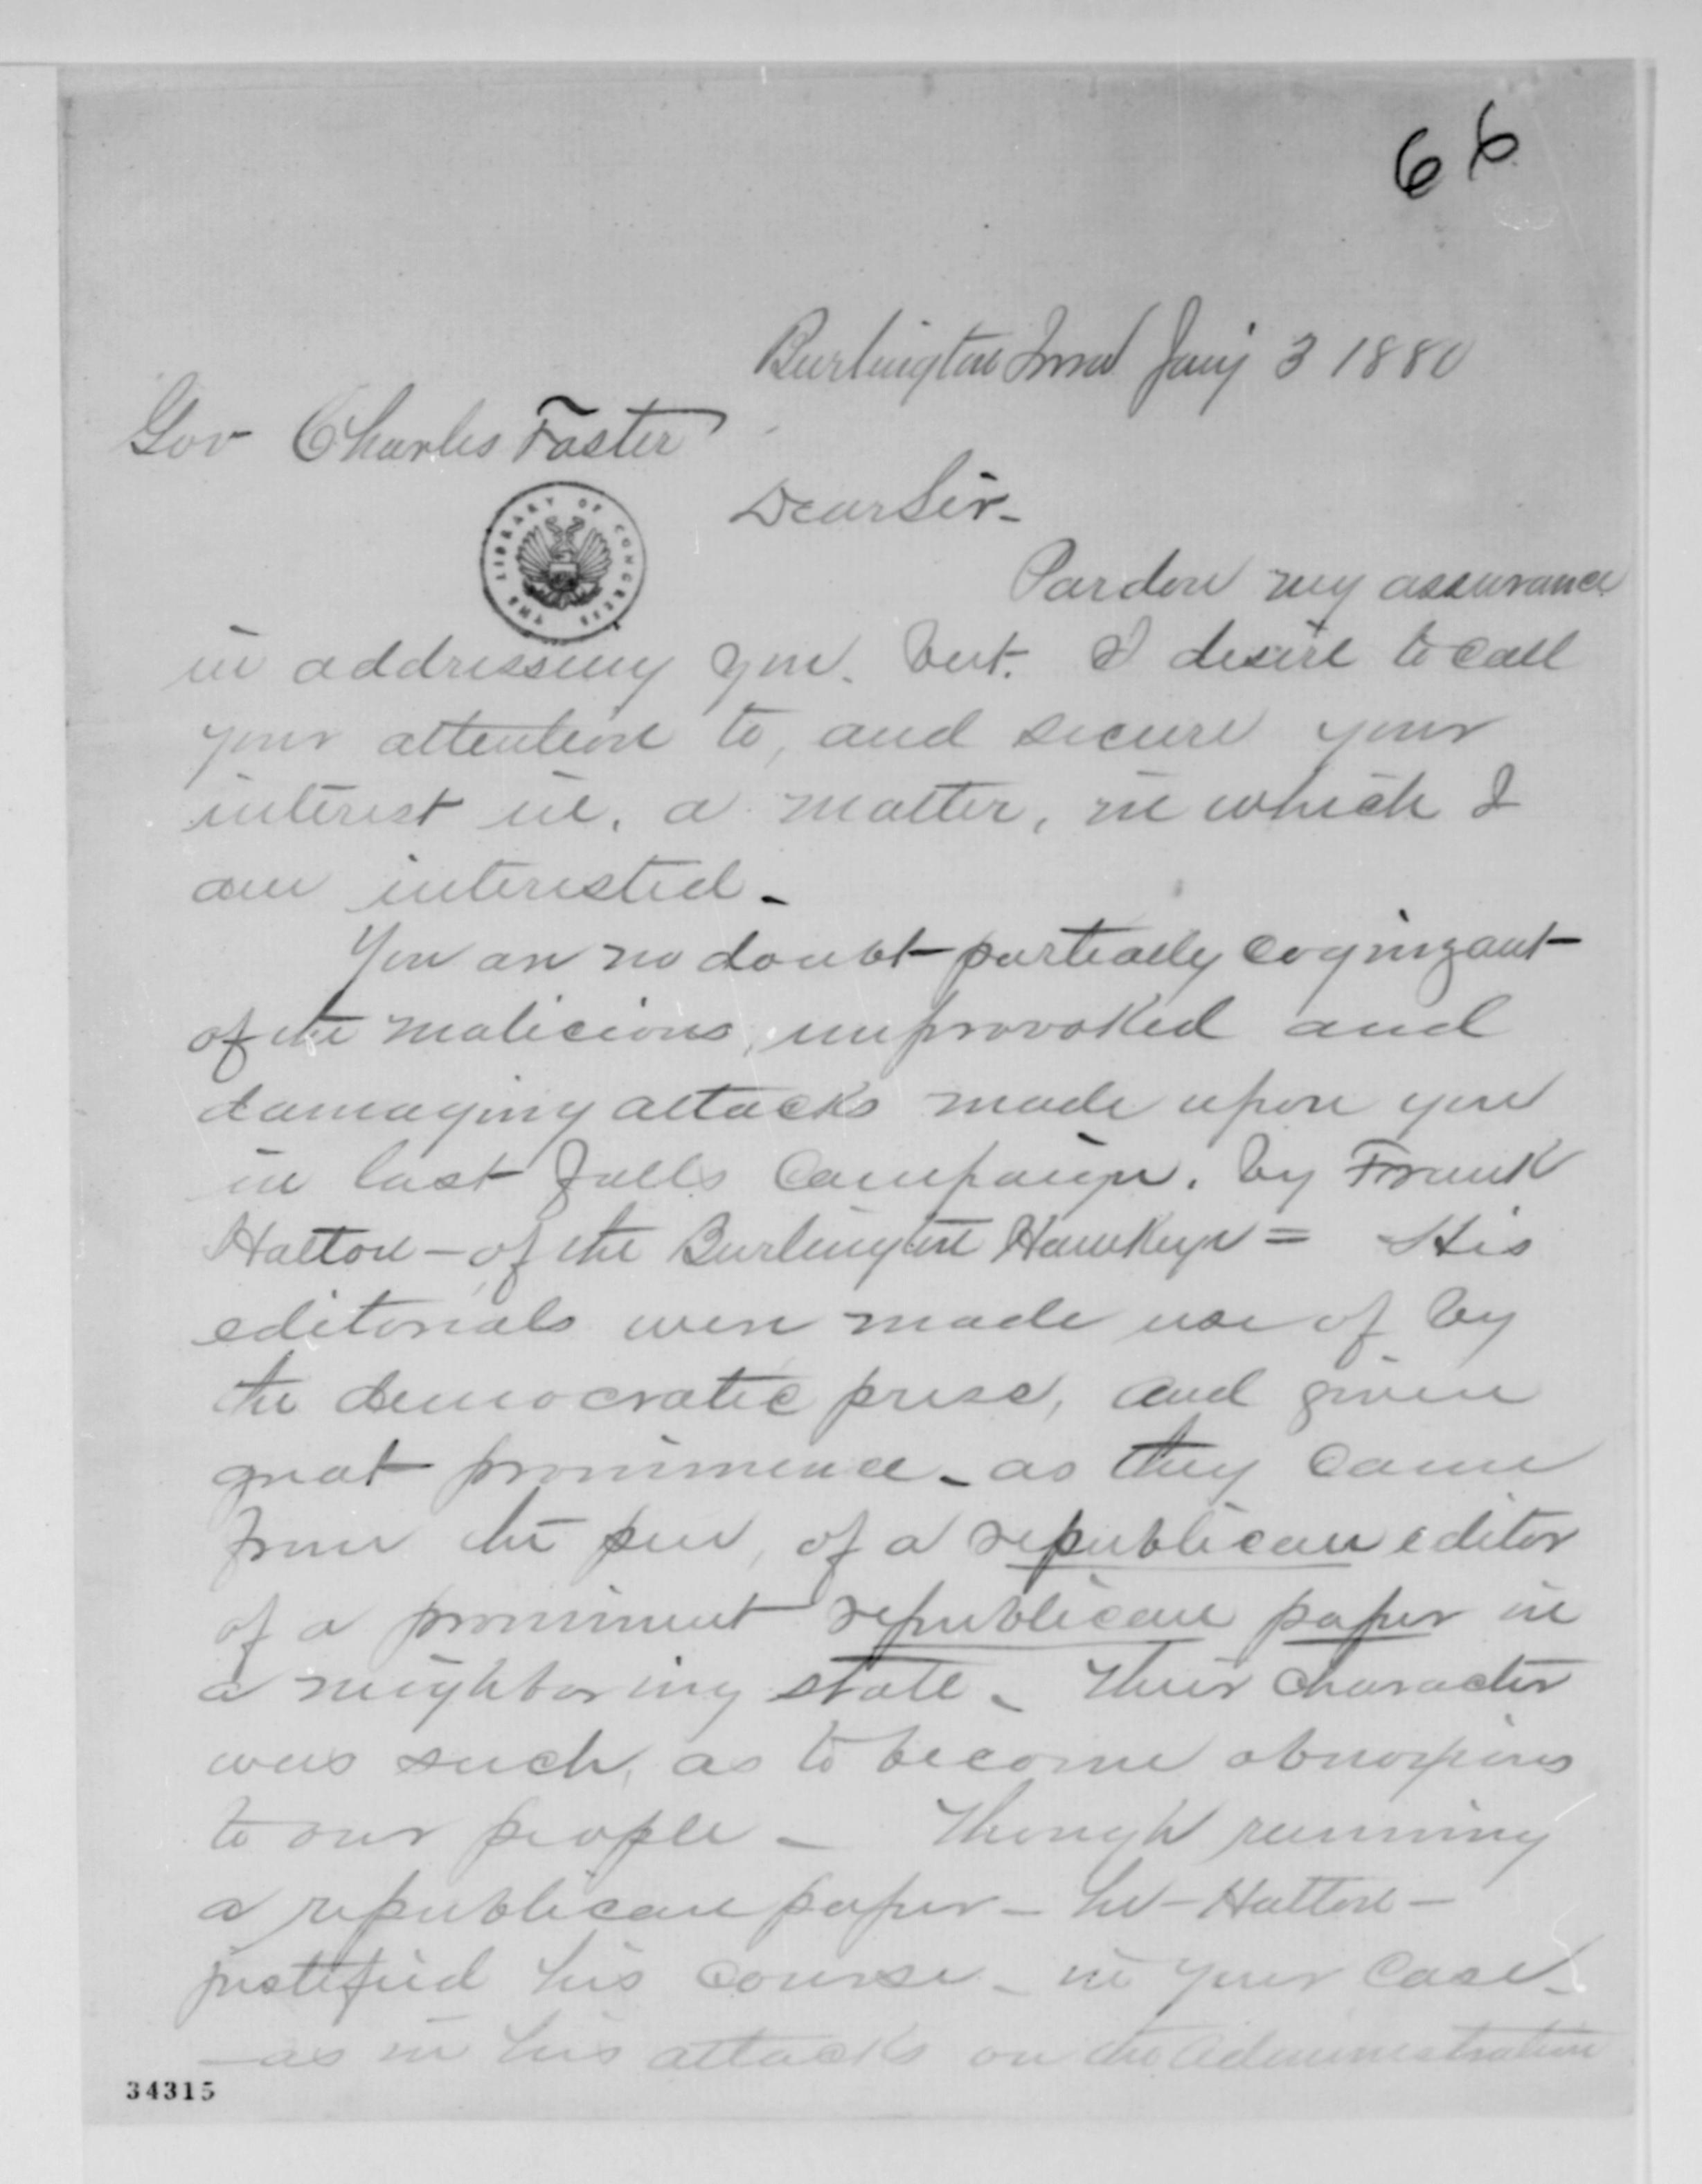 66
Burlington Iowa Jany 3 1880
Gov Charles Foster
Dear Sir -
THE LIBRARY OF CONGRESS
Pardon my assurance
in addressing you. but. I desire to call
your attention to, and secure your
interest in, a matter, in which I
am interested -
You are no doubt partially cognizant
of the malicious, unprovoked and
damaging attacks made upon you
in last falls campaign. by Frank
Hatton - of the Burlington Hawkeye = His
editorials were made use of by
the democratic press, and given
great prominence - as they came
from the pen, of a republican editor
of a prominent republican paper in
a neighboring state - Their character
was such, as to become obnoxious
to our people - Though running
a republican paper - he - Hatton -
justified his course - in your case -
- as in his attacks on the Administration
34315